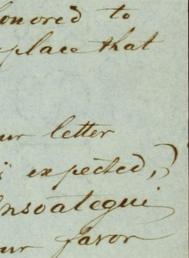 onored to
place that
ur letter
is expected,)
nsoategui
ur favor